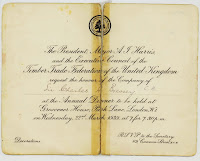 The President, Major A.I. Harris,
and the Executive Council of the
Timber Trade Federation of the United Kingdom
request the honour of the Company of
Sir Charles
at the Annual Dinner to be held at
Grosvenor House, Park Lane, London, W.1
on Wednesday, 22nd March, 1933, at 7 for 7.30 p.m.
Decorations
R.S.V.P. to the Secretary